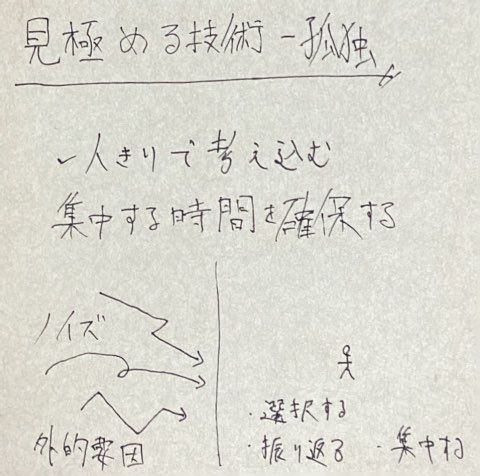 見極める技術-孤独
一人きりで考え込む
集中する時間を確保する
ノイズ
外的要因
・選択する
・振り返る ・集中する